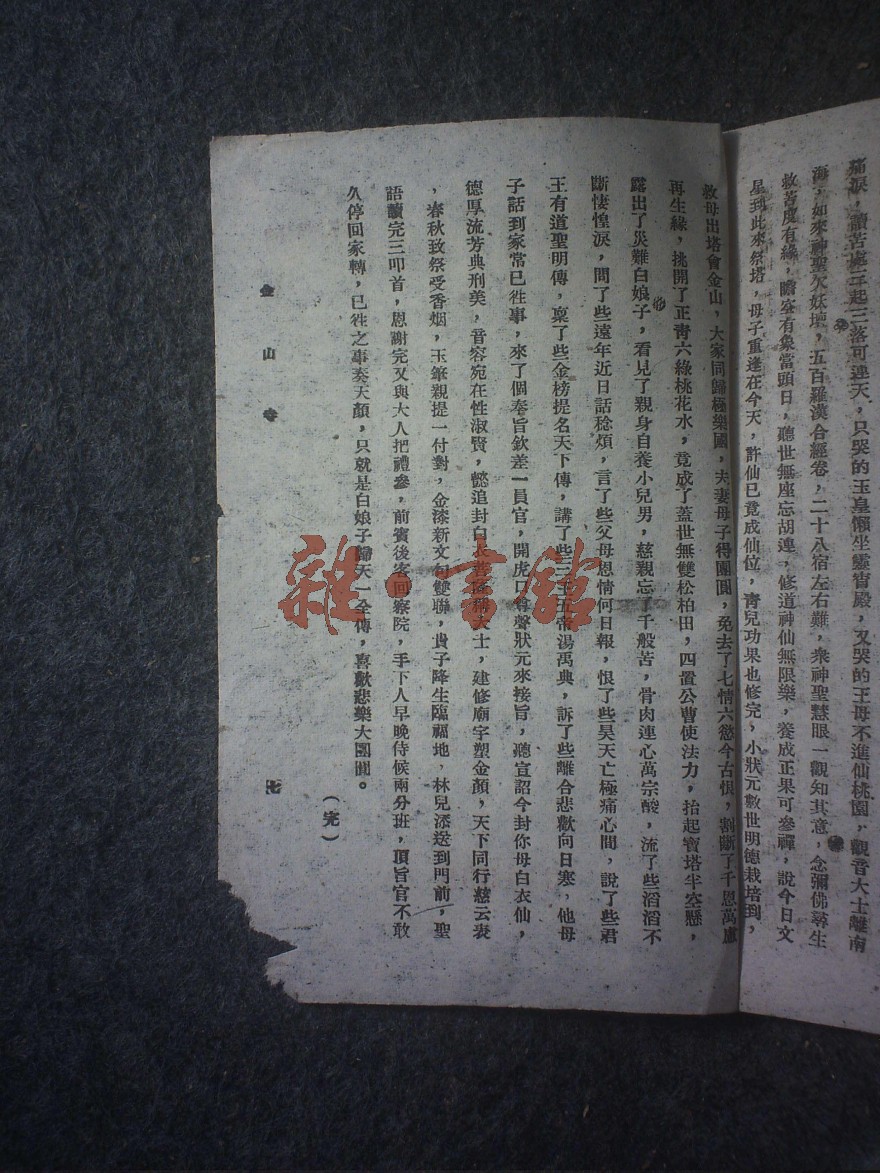 痛淚，讀苦處三起三落可連天，只哭的玉皇懶坐靈宵殿，又哭的王母不進仙桃園，觀音大士離南
海，如來神聖欠妖壇，五百羅漢合經卷，二十八宿左右難，衆神聖慧眼一觀知其意，念彌佛尋生
救苦度有緣，瞻空有象當頭日，聽世無座忘胡連，修道神仙無限樂，養成正果可參禪，說今日文
星到此來祭塔，母子重逢在今天，許仙已竟成仙位，青兒功果也修完，小狀元數世明德栽培到，
救母出塔會金山，大家同歸極樂園，夫妻母子得團圓，免去了七情六慾今古恨，割斷了千恩萬慮
再生緣，挑開了正靑六綠桃花水，竟成了蓋世無雙松柏田，四置公曹使法力，抬起寶塔半空懸，
露出了災難白娘子，看見了親身自養小兒男，慈親忘了千般苦，骨肉連心萬宗酸，流了些滔滔不
斷悽惶淚，問了些遠年近日話稔煩，言了些父母恩情何日報，恨了些昊天亡極痛心間，說了些君
王有道聖明傳，稟了些金榜提名天下傳，講了些三皇五帝湯禹典，訴了些離合悲歡向日寒，他母
子話到家常已徃事，來了個奉旨欽差一員官，開虎口尊聲狀元來接旨，聽宣詔今封你母白衣仙，
德厚流芳典刑美，音容宛在性淑賢，懿追封白衣菩薩稱大士，建修廟宇塑金顏，天下同行慈云衰
，春秋致祭受香烟，玉筆親提一付對，金漆新文句雙聯，貴子降生臨福地，林兒添送到門前，聖
語讀完三叩首，恩謝完又與大人把禮參，前賓後客回察院，手下人早晚侍候兩分班，頂旨官不敢
久停回家轉，已徃之事奏天顏，只就是白娘子歸天一全傳，喜歡悲樂大團圓。
（完）
金山寺
七
雜·書館